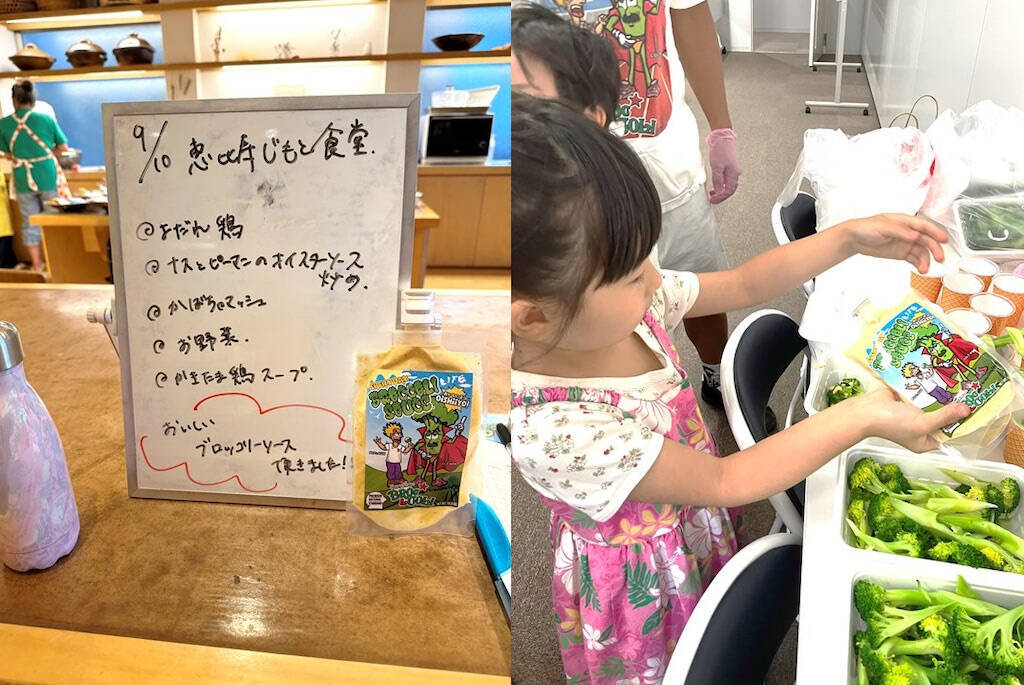 9/10 恵比寿じもと食堂.
@よだれ鶏
@ナスとピーマンのオイスターソース
炒め.
@かぼちゃマッシュ
@お野菜.
@かきたま鶏スープ.
おいしい
ブロッコリーソース
頂きました!
BROCCOLI
SAUCE
OISHIIYO!
BROCCOLI
SAUCE
OISHIIYO!